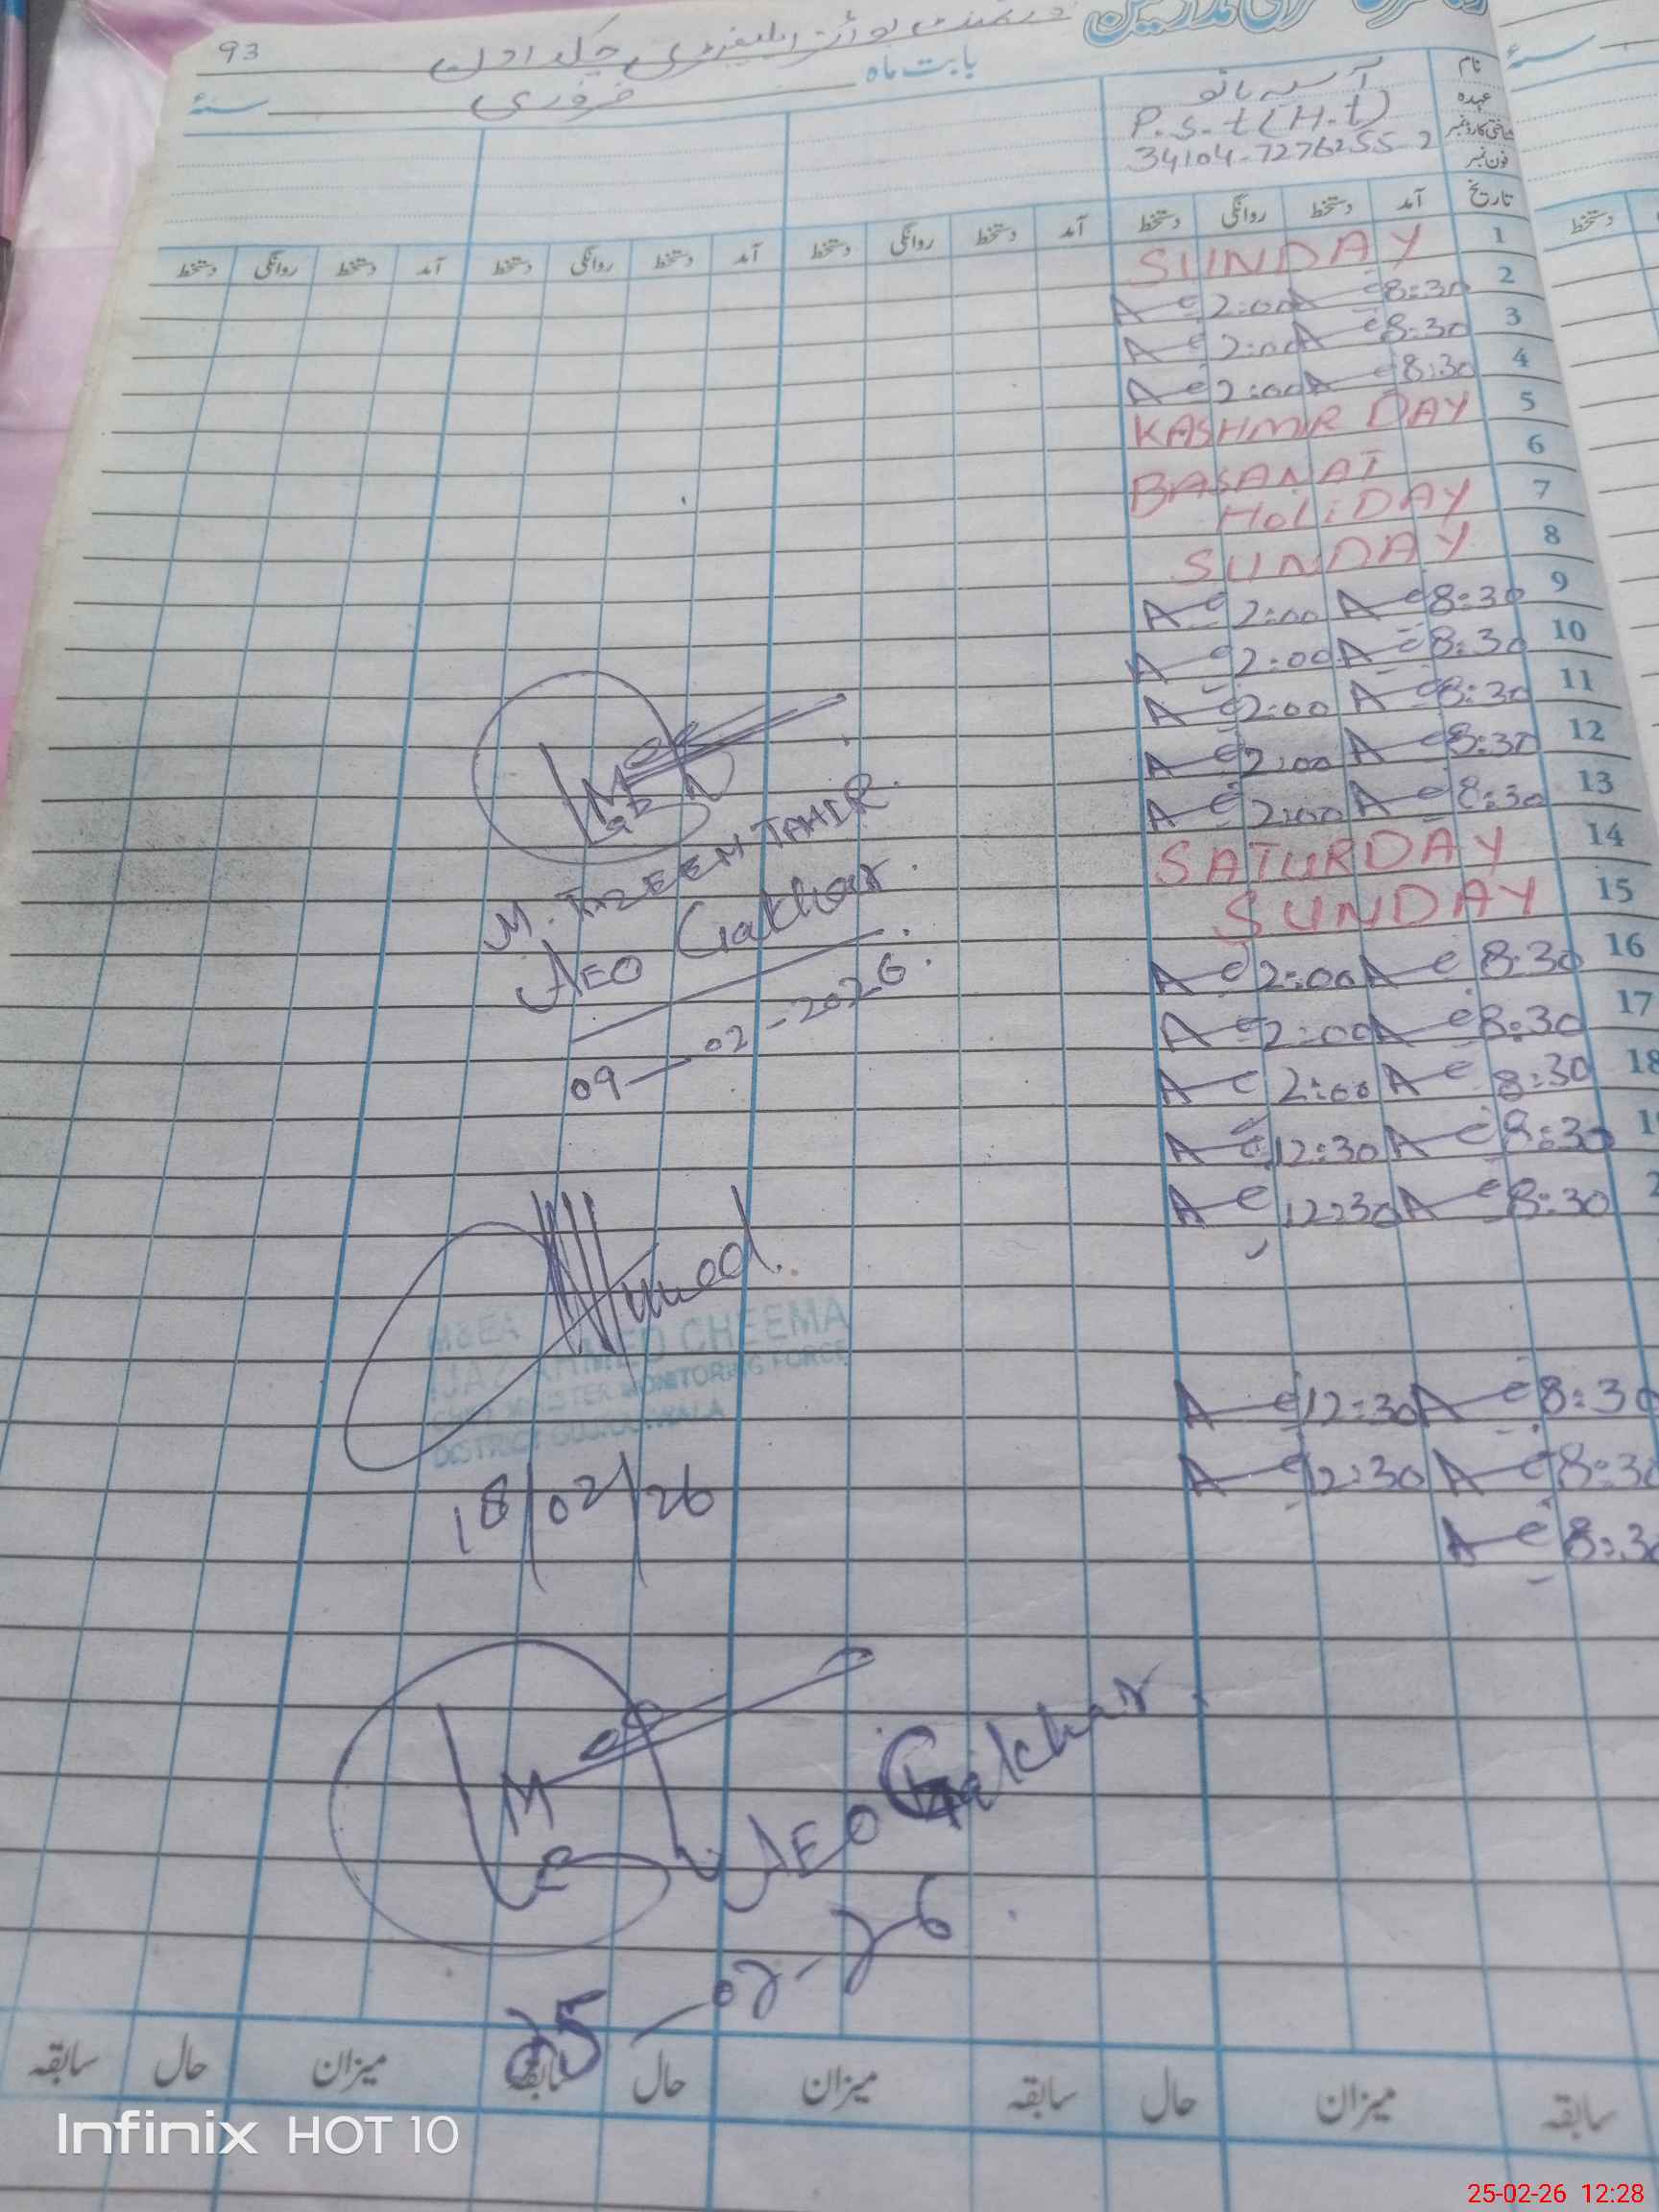 93
بابت ماہ فروری سنہ
نام آسیہ بانو
عہدہ P.S.t (H.t)
شناختی کارڈ نمبر 34104-7276255-2
فون نمبر
تاریخ آمد دستخط روانگی دستخط آمد دستخط روانگی دستخط آمد دستخط روانگی دستخط آمد دستخط روانگی دستخط
دستخط
1 SUNDAY
2 8:30 A 2:00 A
3 8:30 A 2:00 A
4 8:30 A 2:00 A
5 KASHMIR DAY
6 BASANAT
7 HoLiDAY
8 SUNDAY
9 8:30 A 2:00 A
10 8:30 A 2:00 A
11 8:30 A 2:00 A
12 8:30 A 2:00 A
13 8:30 A 2:00 A
14 SATURDAY
15 SUNDAY
16 8:30 A 2:00 A
17 8:30 A 2:00 A
18 8:30 A 2:00 A
8:30 A 12:30 A
8:30 A 12:30 A
8:30 A 12:30 A
8:30 A 12:30 A
8:30 A
M. TAZEEM TAHIR.
AEO Gakhar.
09-02-2026.
Ahmed.
M&EA
IJAZ AHMED CHEEMA
CHIEF MINISTER MONITORING FORCE
DISTRICT GUJRANWALA
18/02/26
AEO Gakhar.
25-02-26.
سابقہ میزان حال سابقہ میزان حال سابقہ میزان حال سابقہ
Infinix HOT 10
25-02-26 12:28